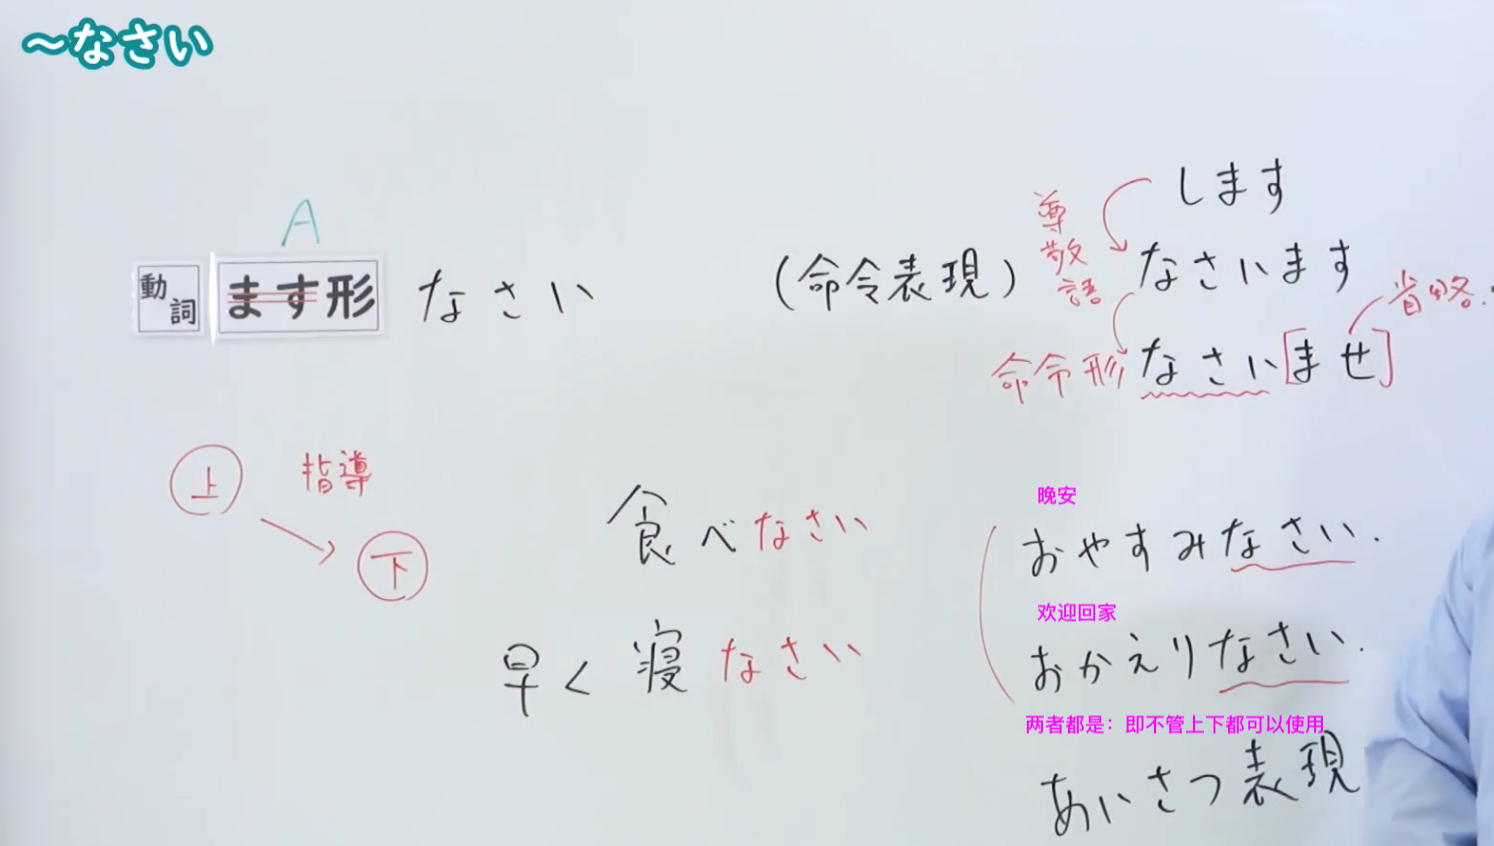 ～なさい
A
動詞 ます形 なさい
(命令表現)
します
尊敬語
なさいます
省略.
命令形 なさい[ませ]
上 指導
下
食べなさい
早く寝なさい
晚安
おやすみなさい.
欢迎回家
おかえりなさい.
两者都是：即不管上下都可以使用
あいさつ表現